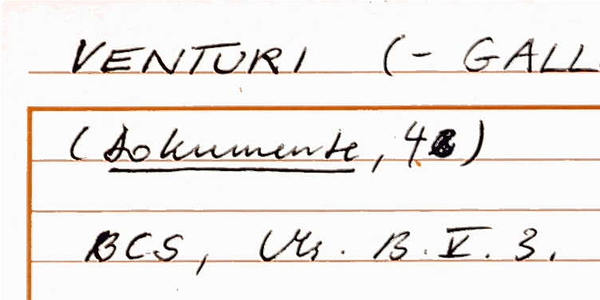 VENTURI (- GALL
(Dokumente, 48)
BCS, Ms. B.V. 3.